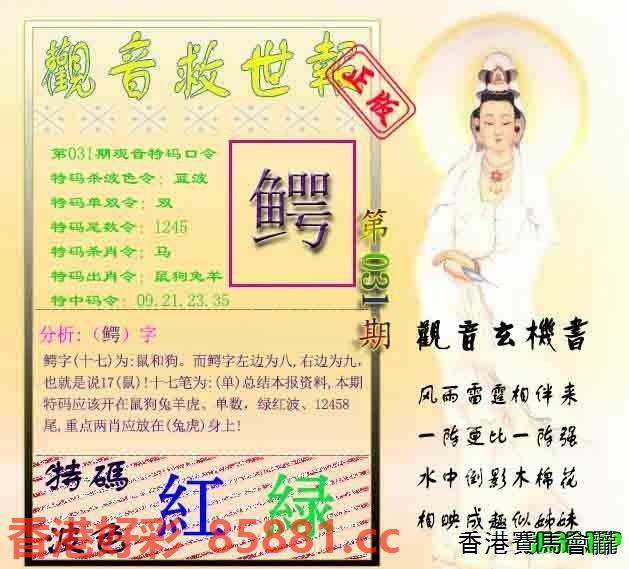 觀音救世報
正版
第031期观音特码口令
特码杀波色令：蓝波
特码单双令：双
特码尾数令：1245
特码杀肖令：马
特码出肖令：鼠狗兔羊
特中码令：09.21.23.35
鳄
第031期
分析:（鳄）字
鳄字(十七)为:鼠和狗。而鳄字左边为八,右边为九,
也就是说17(鼠)!十七笔为:(单)总结本报资料,本期
特码应该开在鼠狗兔羊虎、单数，绿红波、12458
尾,重点两肖应放在(兔虎)身上!
觀音玄機書
风雨雷霆相伴来
一阵更比一阵强
水中倒影木棉花
相映成趣似姊妹
特碼
波色
紅 绿
香港好彩 85881.cc
香港賽馬會